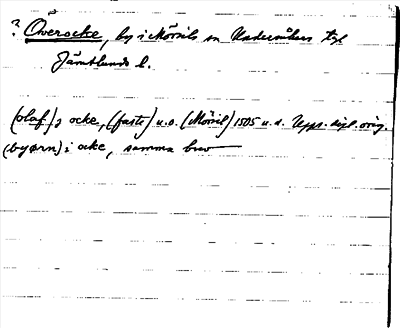 ? Överocke, by i Mörsils sn Undersåkers tgl
Jämtlands l.
(olaf) j ocke, (faste) u.o. (Mörsil) 1505 u.d. Upps. dipl. orig.
(byørn) i ocke, samma brev